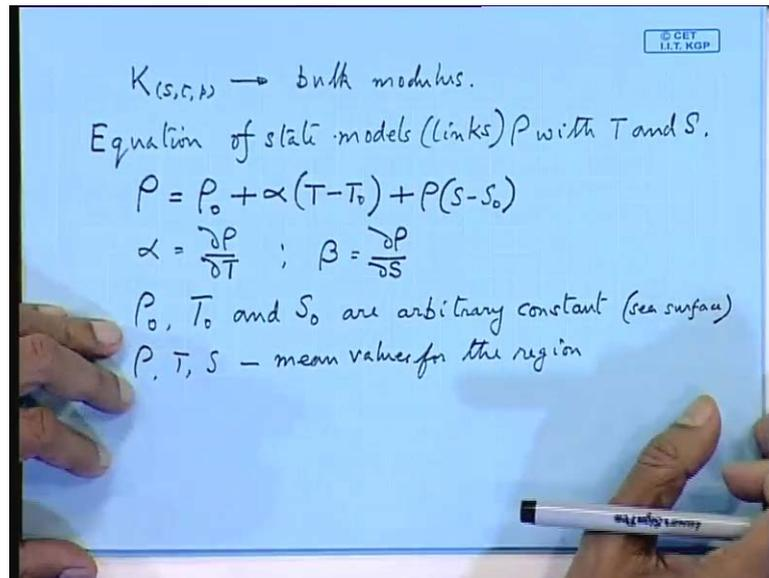 © CET
I.I.T. KGP
K(S,T,p) → bulk modulus.
Equation of state models (links) ρ with T and S.
ρ = ρ₀ + α(T-T₀) + ρ(S-S₀)
α = ∂ρ/∂T ; β = ∂ρ/∂S
ρ₀, T₀ and S₀ are arbitrary constant (sea surface)
ρ, T, S - mean values for the region